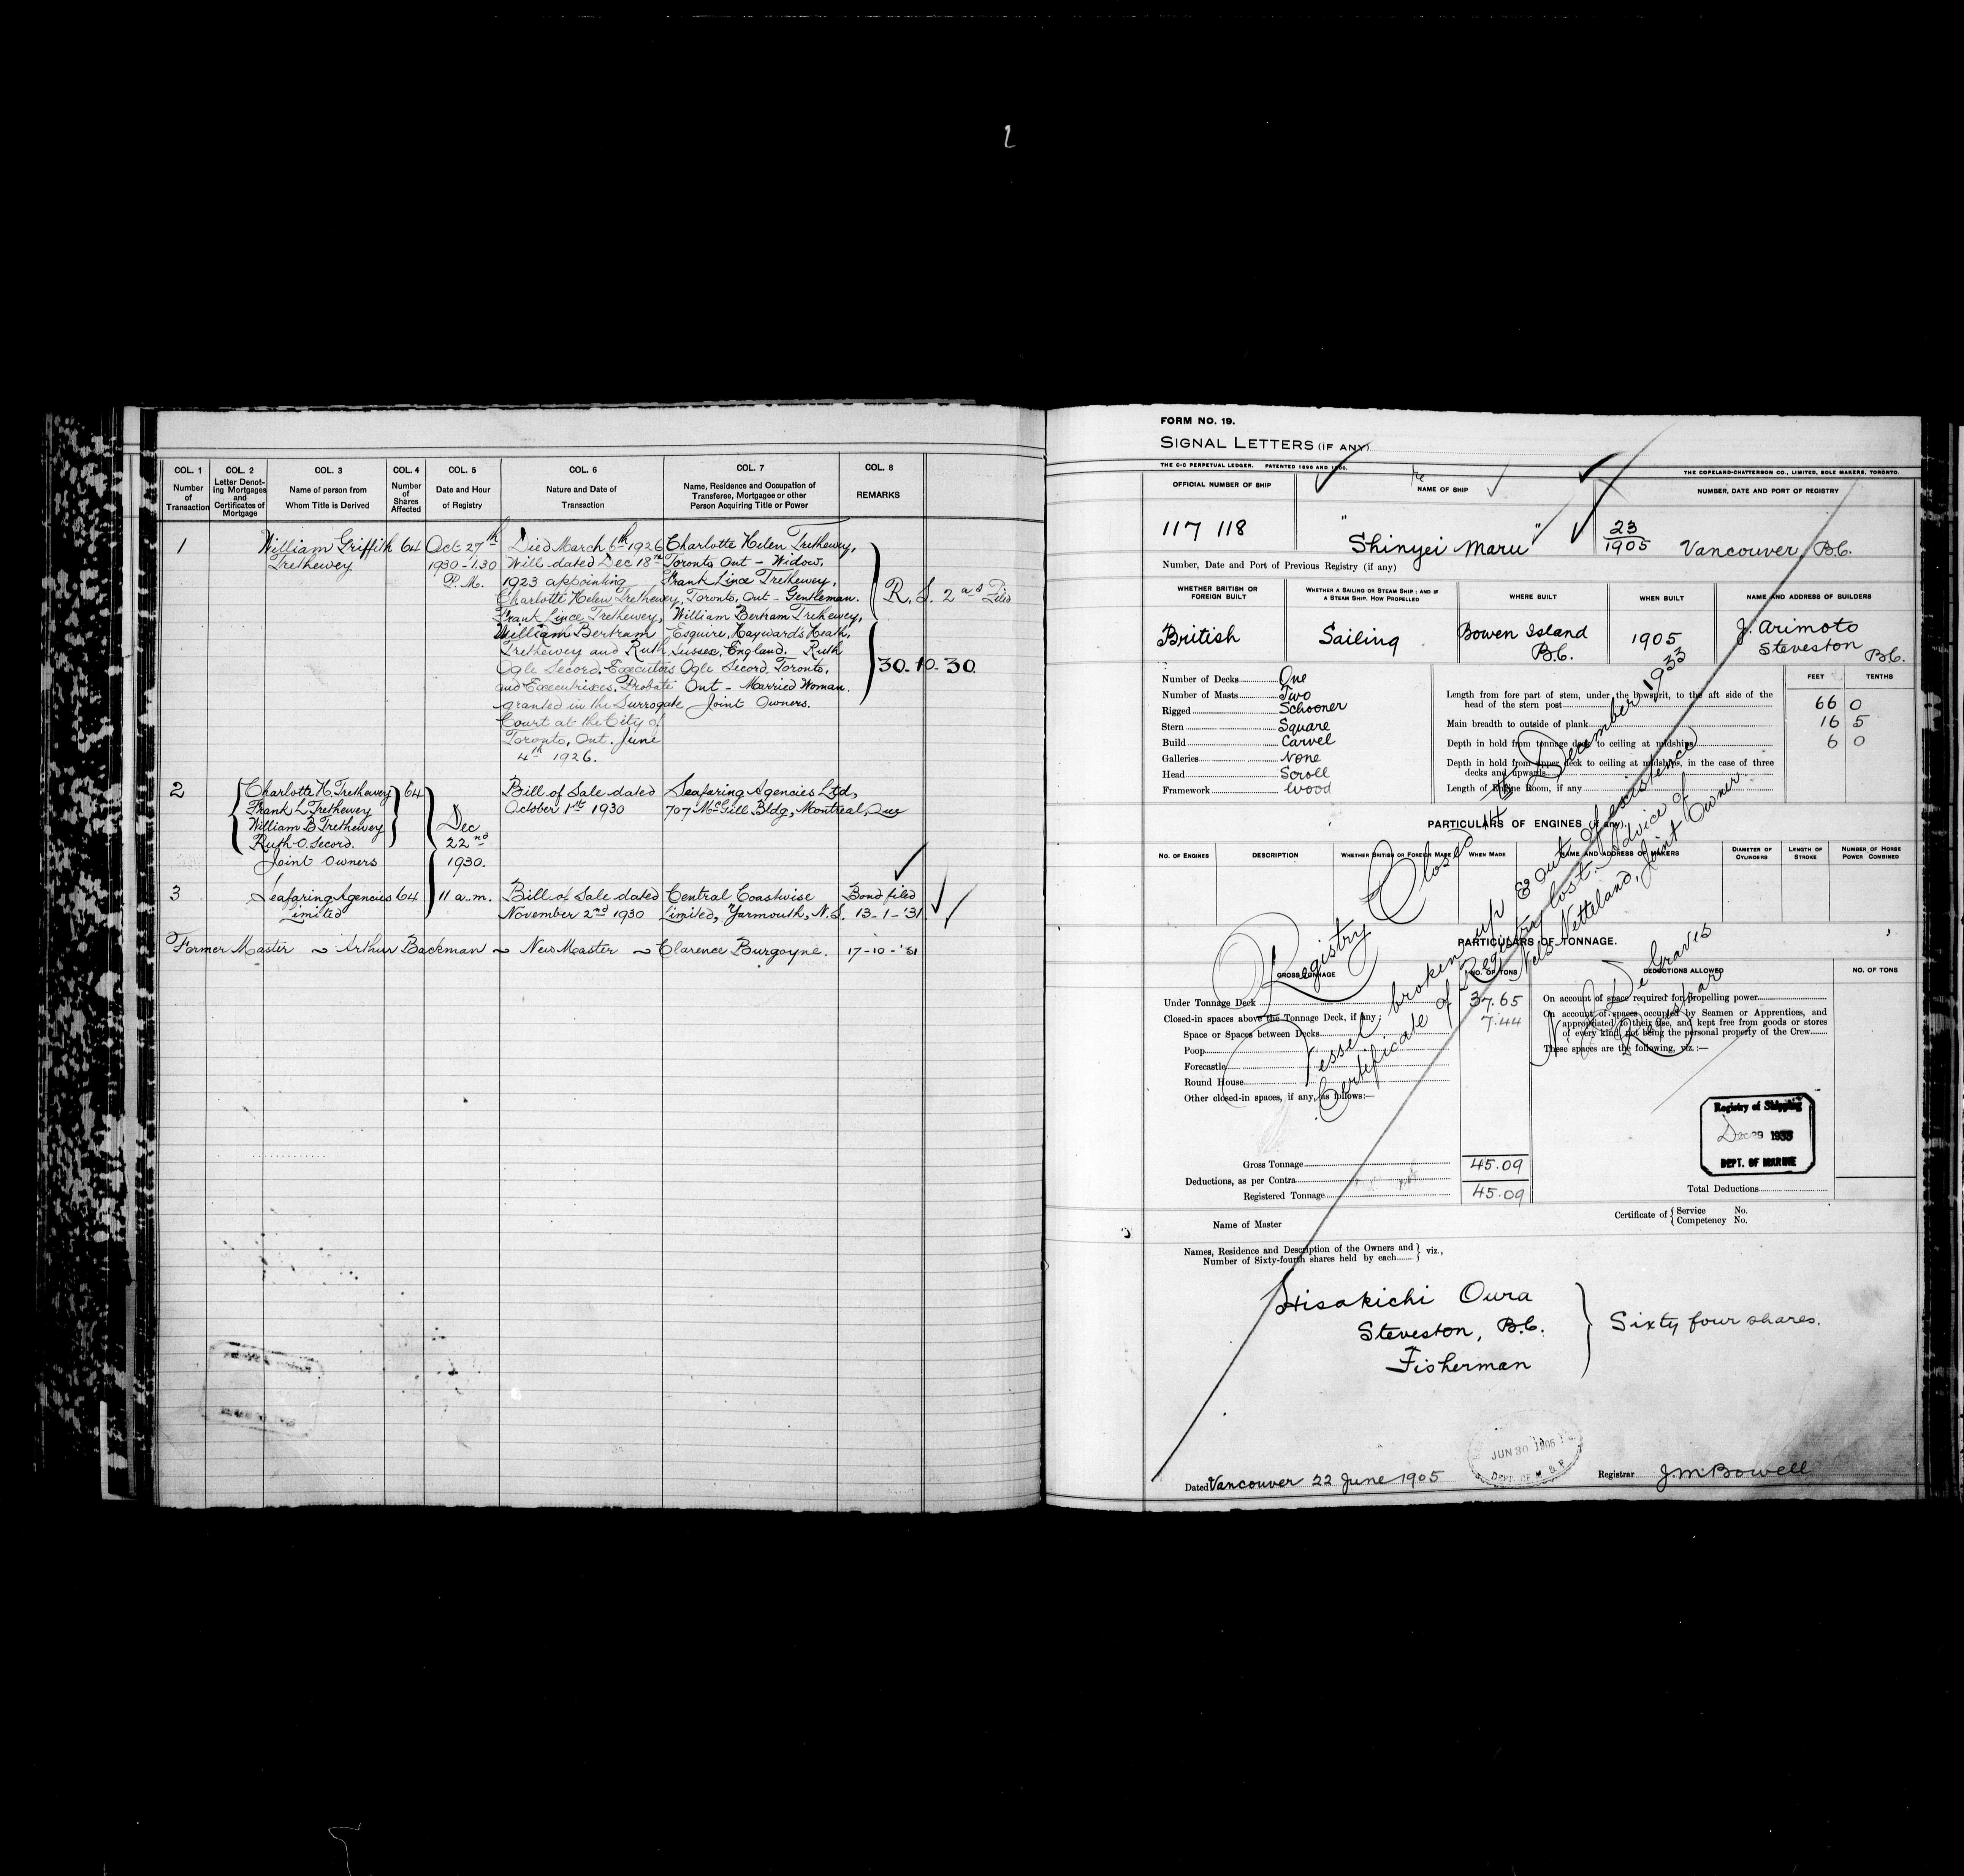 COL. 1
Number of Transaction
COL. 2
Letter Denoting Mortgages and Certificates of Mortgage
COL. 3
Name of person from Whom Title is Derived
COL. 4
Number of Shares Affected
COL. 5
Date and Hour of Registry
COL. 6
Nature and Date of Transaction
COL. 7
Name, Residence and Occupation of Transferee, Mortgagee or other Person Acquiring Title or Power
COL. 8
REMARKS
1
William Griffith
Trethewey
64
Oct 27th
1930 - 1.30
P.M.
Died March 6th 1926
Will dated Dec 18th
1923 appointing
Charlotte Helen Trethewey,
Frank Lince Trethewey,
William Bertram
Trethewey and Ruth
Ogle Secord. Executors
and Executrixes. Probate
granted in the Surrogate
Court at the City of
Toronto, Ont. June
4th 1926.
Charlotte Helen Trethewey,
Toronto Ont - Widow.
Frank Lince Trethewey,
Toronto, Ont - Gentleman.
William Bertram Trethewey,
Esquire, Hayward's Heath,
Sussex, England. Ruth
Ogle Secord, Toronto,
Ont - Married Woman.
Joint Owners.
R. S. 2 and Filed
30-10-30
2
Charlotte H. Trethewey
Frank L. Trethewey
William B Trethewey
Ruth O. Secord.
Joint Owners
64
Dec
22nd
1930.
11 a.m.
Bill of Sale dated
October 1st 1930
Seafaring Agencies Ltd,
707 McGill Bldg, Montreal, Que
3
Seafaring Agencies
Limited
64
Bill of Sale dated
November 2nd 1930
Central Coastwise
Limited, Yarmouth, N.S.
Bond filed
13-1-'31
Former Master ~ Arthur Backman ~ New Master ~ Clarence Burgoyne. 17-10-'31
FORM NO. 19.
SIGNAL LETTERS (IF ANY)
THE C-C PERPETUAL LEDGER. PATENTED 1896 AND 1900.
THE COPELAND-CHATTERSON CO., LIMITED, SOLE MAKERS, TORONTO.
OFFICIAL NUMBER OF SHIP
NAME OF SHIP
NUMBER, DATE AND PORT OF REGISTRY
117 118
"Shinyei Maru"
23/1905 Vancouver B.C.
Number, Date and Port of Previous Registry (if any)
WHETHER BRITISH OR FOREIGN BUILT
WHETHER A SAILING OR STEAM SHIP; AND IF A STEAM SHIP, HOW PROPELLED
WHERE BUILT
WHEN BUILT
NAME AND ADDRESS OF BUILDERS
British
Sailing
Bowen Island
B.C.
1905
J. Arimoto
Steveston B.C.
Number of Decks One
Number of Masts Two
Rigged Schooner
Stern Square
Build Carvel
Galleries None
Head Scroll
Framework Wood
FEET TENTHS
Length from fore part of stem, under the bowsprit, to the aft side of the head of the stern post 66 0
Main breadth to outside of plank 16 5
Depth in hold from tonnage deck to ceiling at midships 6 0
Depth in hold from upper deck to ceiling at midships, in the case of three decks and upwards
Length of Engine Room, if any
PARTICULARS OF ENGINES (if any).
NO. OF ENGINES
DESCRIPTION
WHETHER BRITISH OR FOREIGN MADE
WHEN MADE
NAME AND ADDRESS OF MAKERS
DIAMETER OF CYLINDERS
LENGTH OF STROKE
NUMBER OF HORSE POWER COMBINED
PARTICULARS OF TONNAGE.
GROSS TONNAGE
NO. OF TONS
DEDUCTIONS ALLOWED
NO. OF TONS
Under Tonnage Deck 37.65
Closed-in spaces above the Tonnage Deck, if any: 7.44
Space or Spaces between Decks
Poop
Forecastle
Round House
Other closed-in spaces, if any, as follows:—
On account of space required for propelling power
On account of spaces occupied by Seamen or Apprentices, and appropriated to their use, and kept free from goods or stores of every kind, not being the personal property of the Crew
These spaces are the following, viz.:—
Registry Closed 14th December 1933
Vessel broken up & out of existence
Certificate of Registry lost. Advice of
Nels Netteland, Joint Owner
DeGraves
Registrar
Registry of Shipping
Dec 29 1933
DEPT. OF MARINE
Gross Tonnage 45.09
Deductions, as per Contra
Registered Tonnage 45.09
Total Deductions
Name of Master
Certificate of { Service No.
Competency No.
Names, Residence and Description of the Owners and Number of Sixty-fourth shares held by each } viz.,
Hisakichi Oura
Steveston, B.C.
Fisherman
Sixty four shares.
JUN 30 1905
DEPT. OF M & F
Dated Vancouver 22 June 1905
Registrar J.M. Bowell